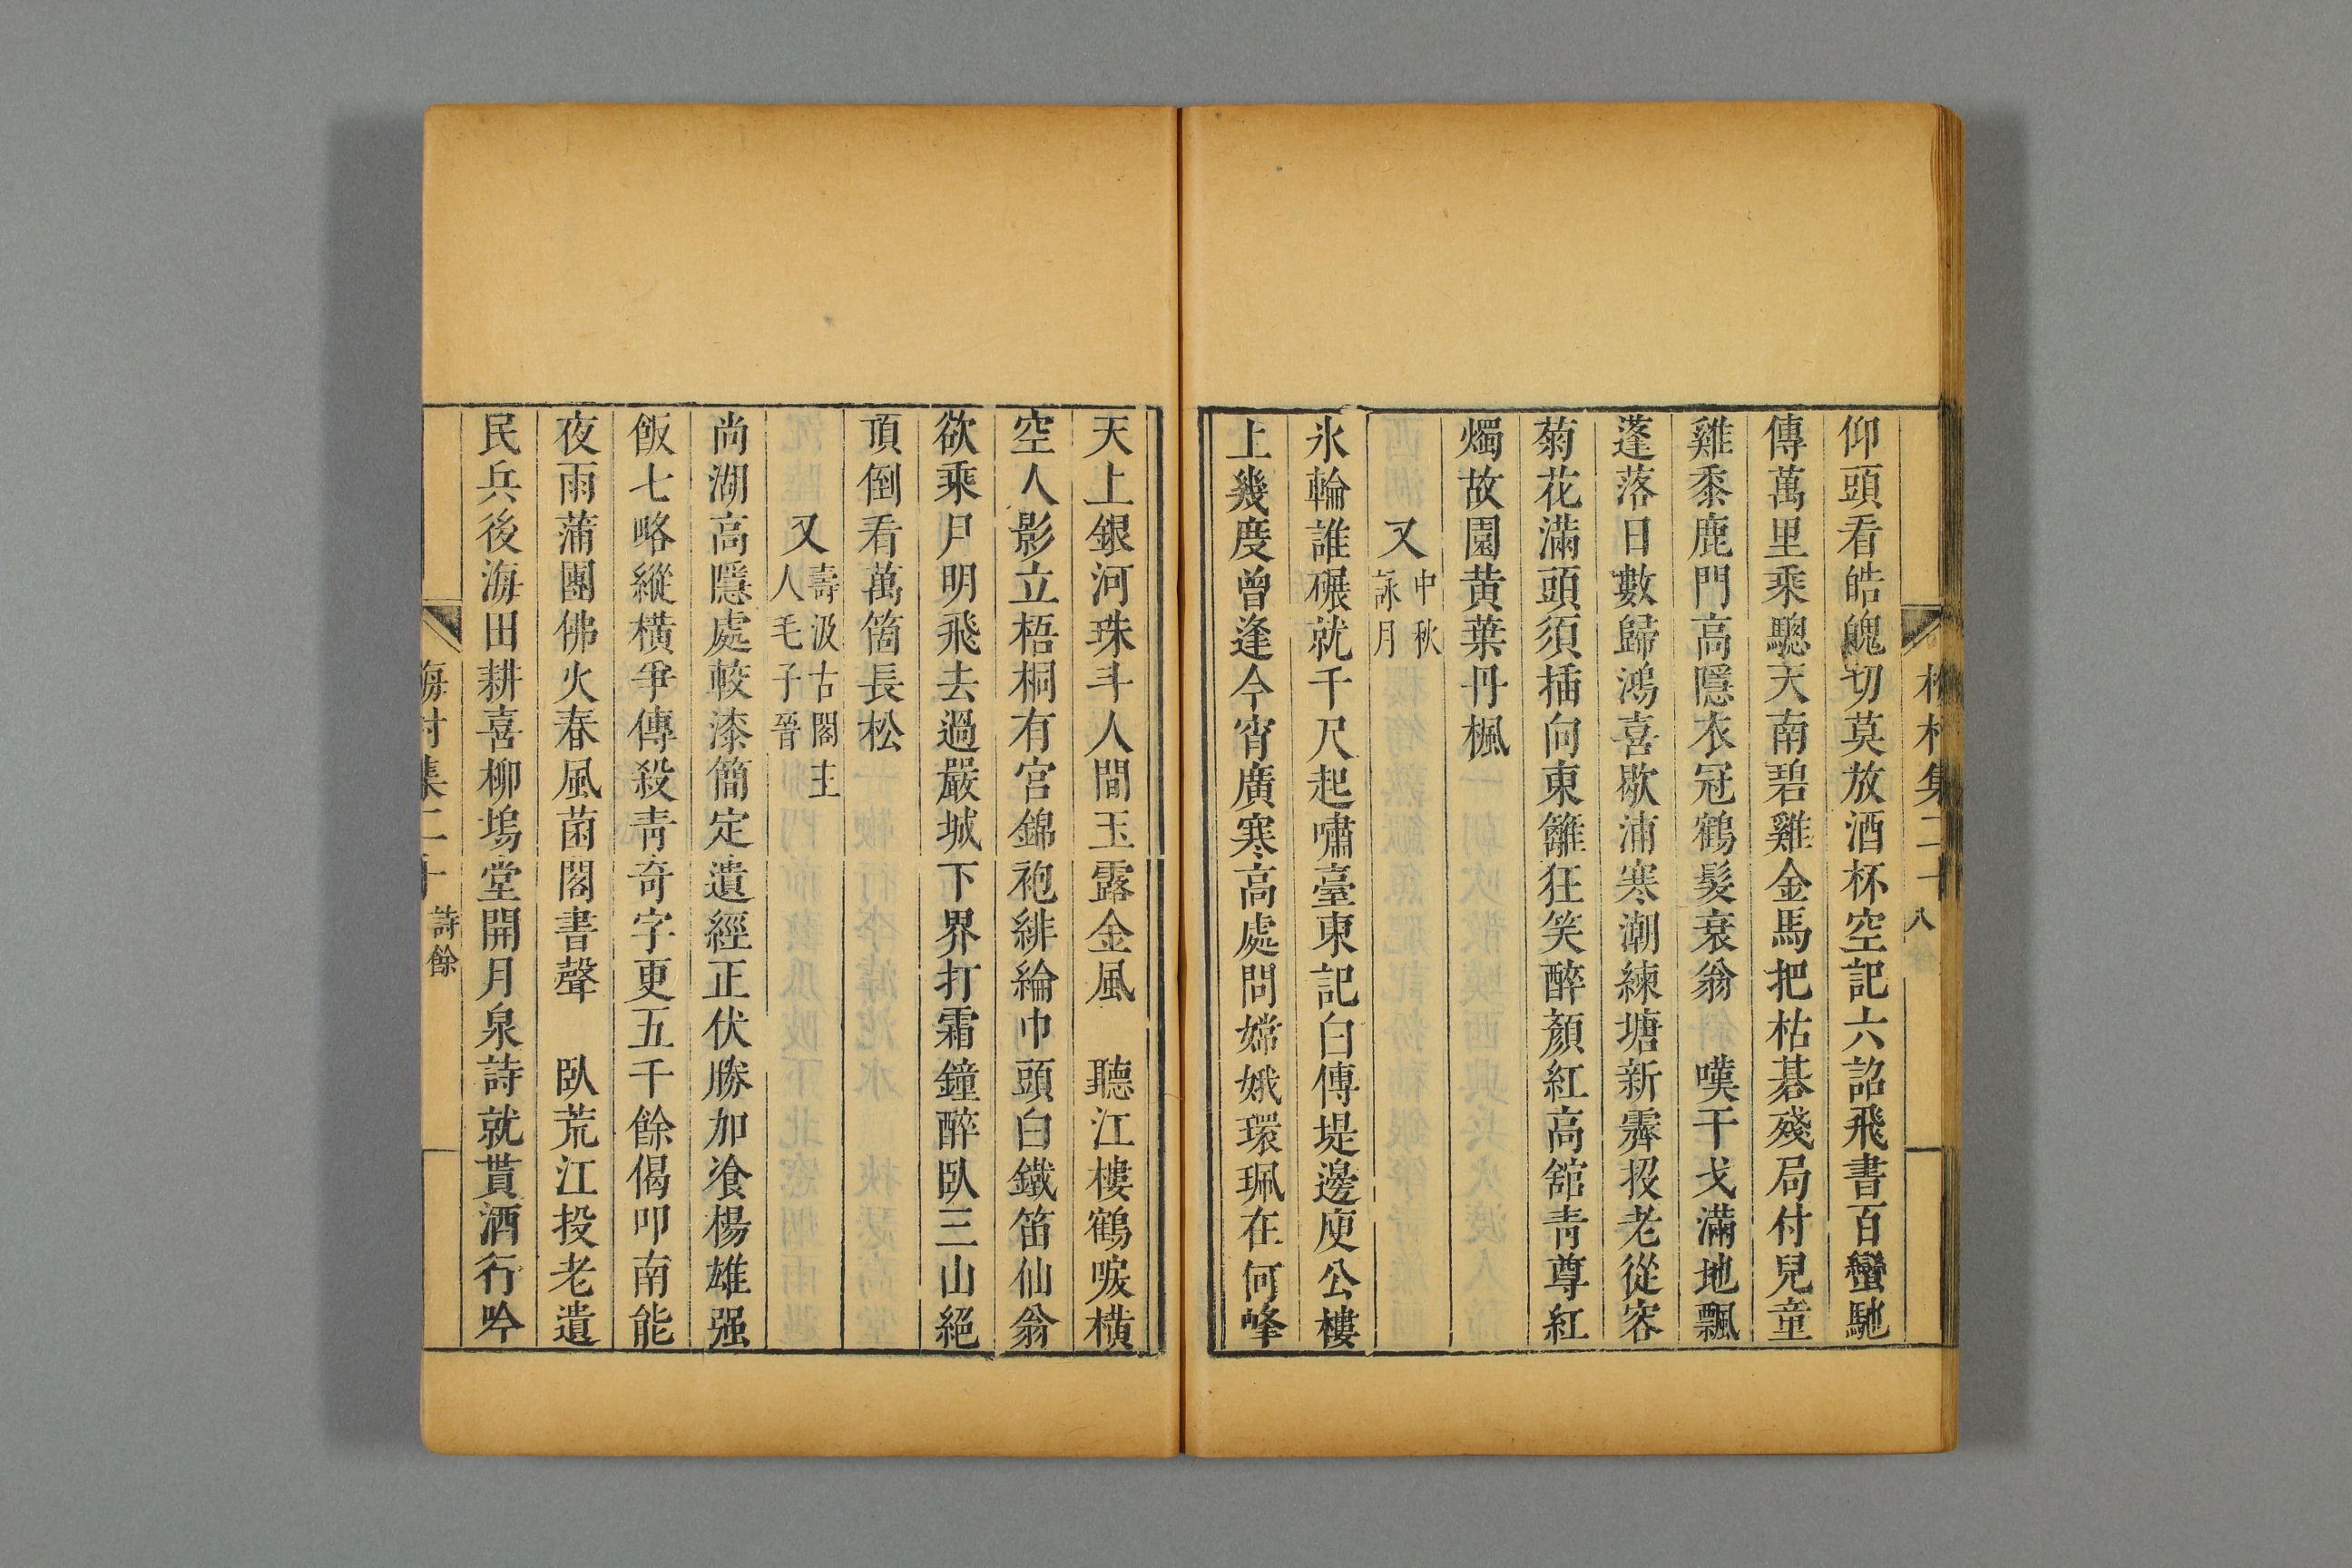 仰頭看皓魄切莫放酒杯空記六詔飛書百蠻馳
傳萬里乘驄天南碧雞金馬把枯碁殘局付兒童
雞黍鹿門高隱衣冠鶴髮衰翁　嘆干戈滿地飄
蓬落日數歸鴻喜歇浦寒潮練塘新霽投老從容
菊花滿頭須插向東籬狂笑醉顏紅高舘青尊紅
燭故園黃葉丹楓
又中秋
詠月
氷輪誰碾就千尺起嘯臺東記白傅堤邊庾公樓
上幾度曾逢今宵廣寒高處問嫦娥環珮在何峰
天上銀河珠斗人間玉露金風　聽江樓鶴唳橫
空人影立梧桐有宮錦袍緋綸巾頭白鐵笛仙翁
欲乘月明飛去過嚴城下界打霜鐘醉臥三山絕
頂倒看萬箇長松
又壽汲古閣主
人毛子晉
尚湖高隱處較漆簡定遺經正伏勝加湌楊雄强
飯七略縱橫爭傳殺青奇字更五千餘偈叩南能
夜雨蒲團佛火春風菌閣書聲　臥荒江投老遺
民兵後海田耕喜柳塢堂開月泉詩就貰酒行吟
梅村集二十
詩餘
村集二十
八